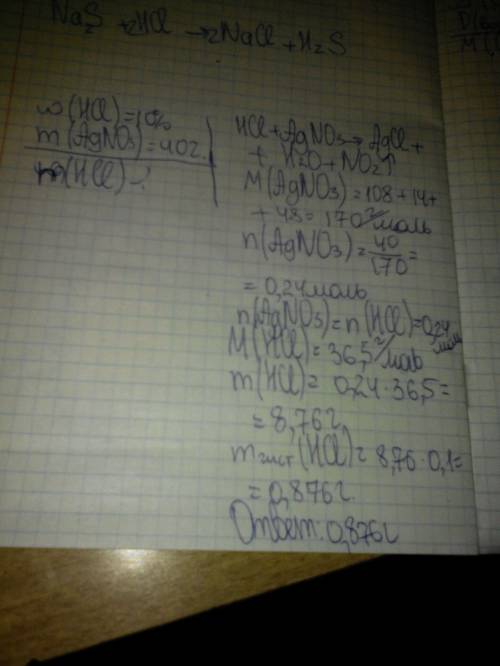 Na₂S + 2HCl → 2NaCl + H₂S
w(HCl) = 10%
m(AgNO₃) = 40г.
m(HCl) - ?
HCl + AgNO₃ → AgCl +
+ H₂O + NO₂↑
M(AgNO₃) = 108 + 14 +
+ 48 = 170 г/моль
n(AgNO₃) = 40/170 =
= 0,24 моль
n(AgNO₃) = n(HCl) = 0,24 моль
M(HCl) = 36,5 г/моль
m(HCl) = 0,24 · 36,5 =
= 8,76 г.
m чист (HCl) = 8,76 · 0,1 =
= 0,876 г.
Ответ: 0,876 г